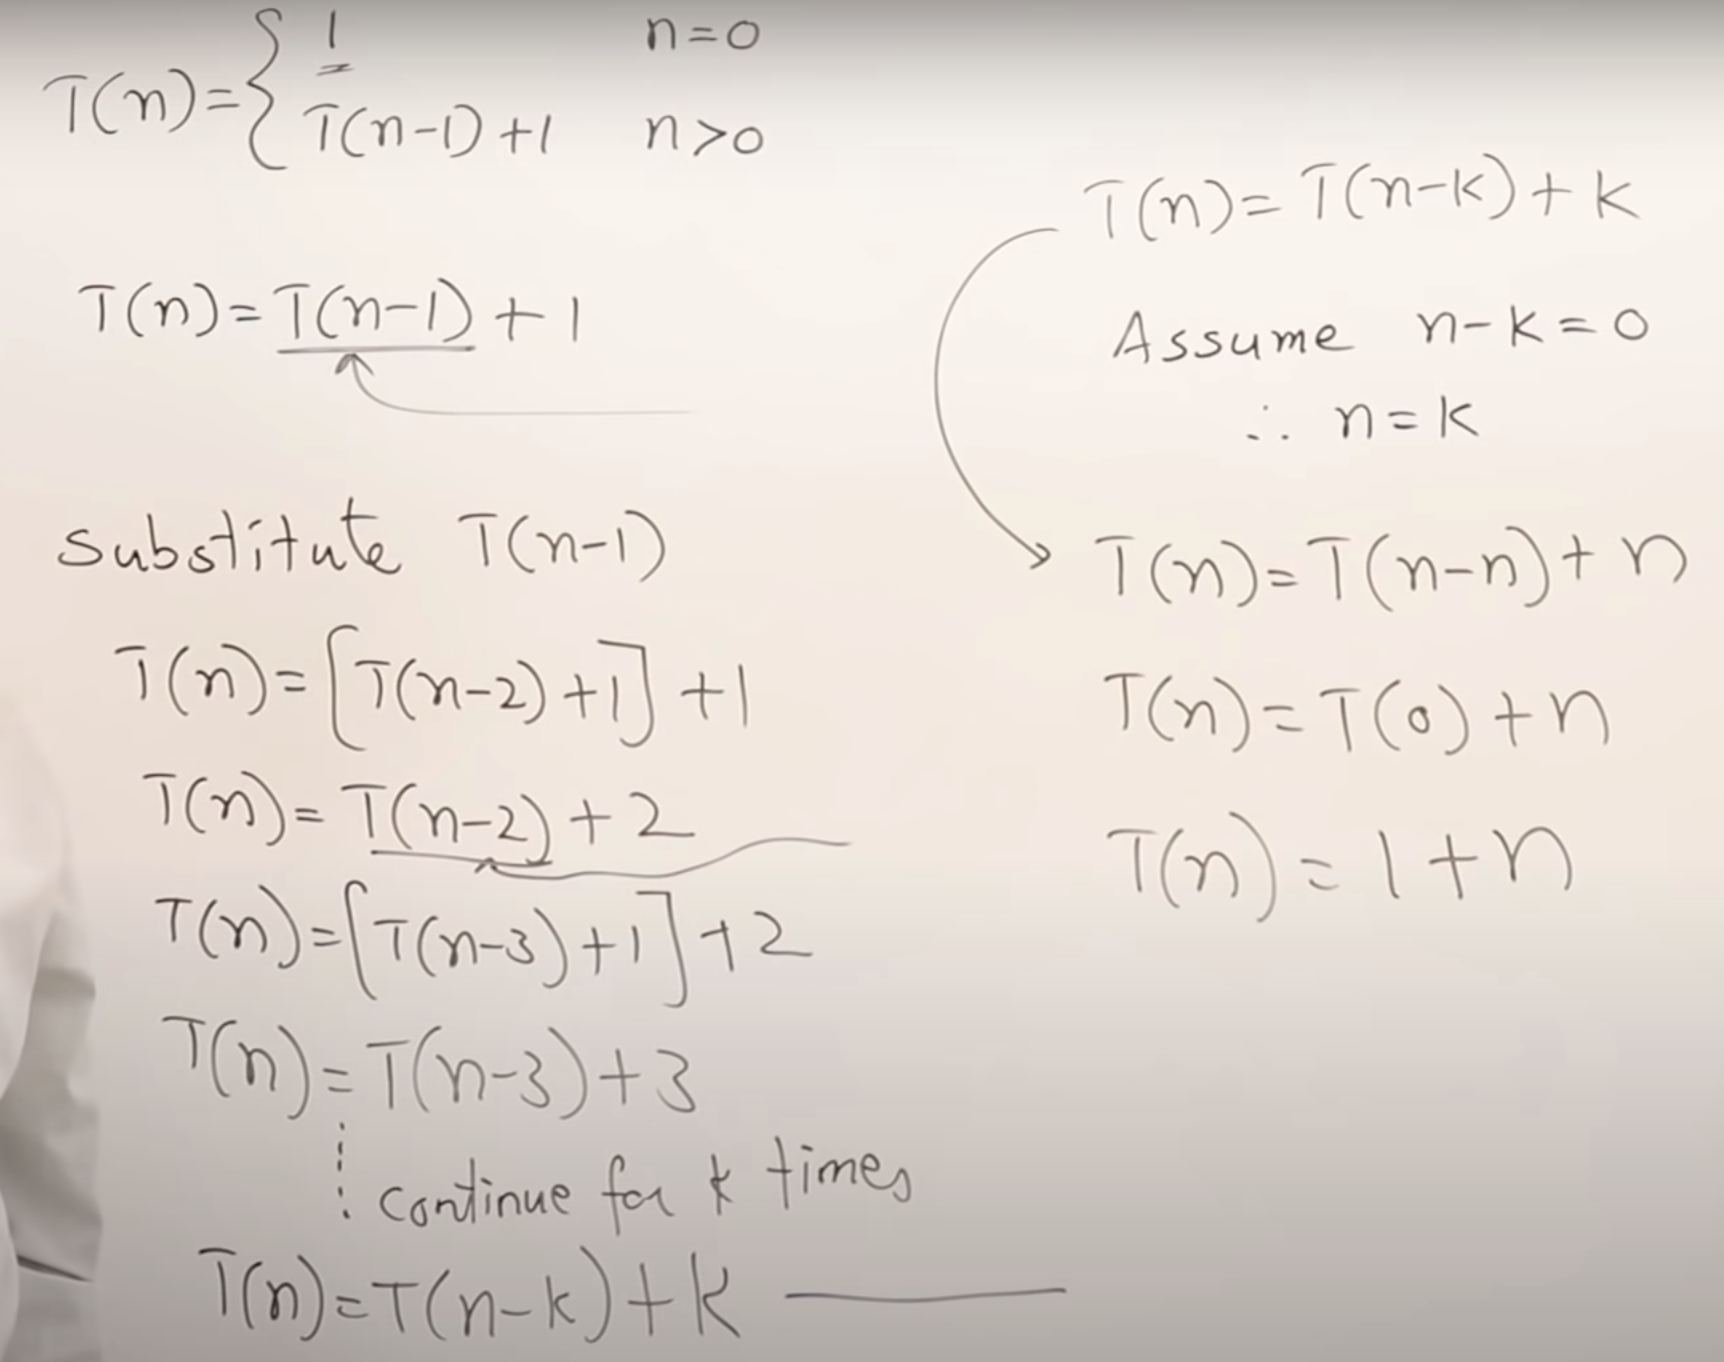 T(n)= { 1 n=0
T(n-1)+1 n>0
T(n)=T(n-1)+1
substitute T(n-1)
T(n)=[T(n-2)+1]+1
T(n)=T(n-2)+2
T(n)=[T(n-3)+1]+2
T(n)=T(n-3)+3
⋮ continue for k times
T(n)=T(n-k)+k
T(n)=T(n-k)+k
Assume n-k=0
∴ n=k
T(n)=T(n-n)+n
T(n)=T(0)+n
T(n)=1+n